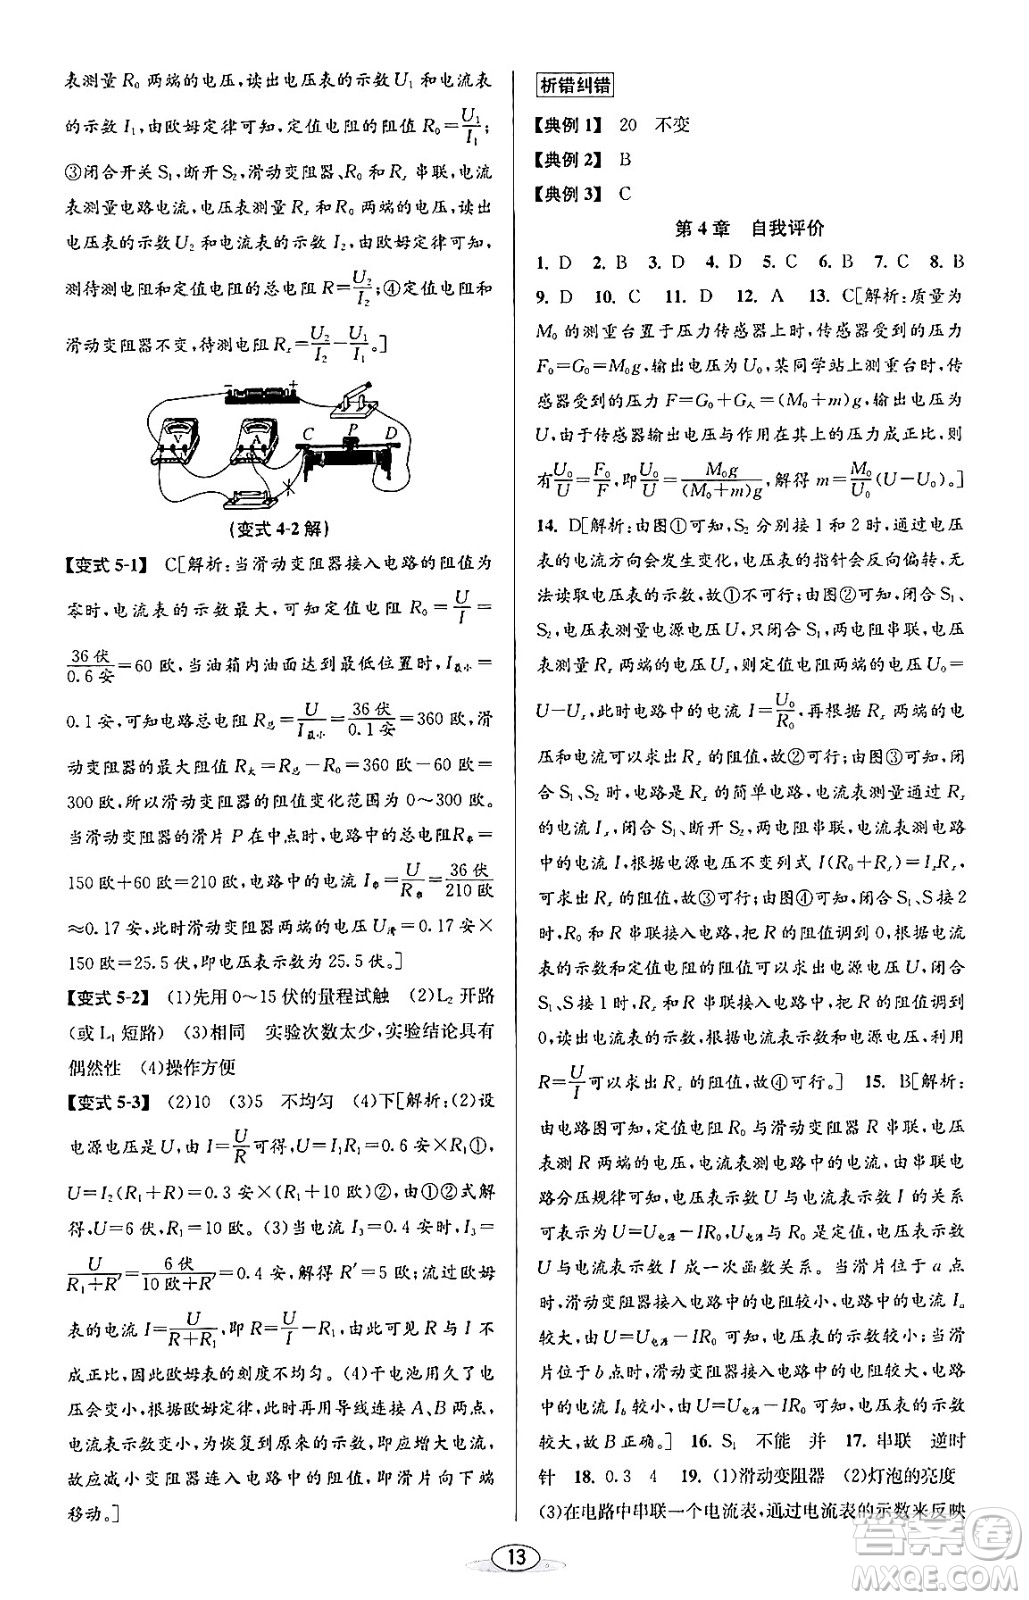 表测量 R₀ 两端的电压,读出电压表的示数 U₁ 和电流表
的示数 I₁,由欧姆定律可知,定值电阻的阻值 R₀=U₁/I₁;
③闭合开关 S₁,断开 S₂,滑动变阻器、R₀ 和 Rₓ 串联,电流表
测量电路电流,电压表测量 Rₓ 和 R₀ 两端的电压,读出
电压表的示数 U₂ 和电流表的示数 I₂,由欧姆定律可知,
测待测电阻和定值电阻的总电阻 R=U₂/I₂;④定值电阻和
滑动变阻器不变,待测电阻 Rₓ=U₂/I₂−U₁/I₁。]
− +
V A C P D
(变式 4-2 解)
【变式 5-1】 C[解析:当滑动变阻器接入电路的阻值为
零时,电流表的示数最大,可知定值电阻 R₀=U/I=
36 伏/0.6 安=60 欧,当油箱内油面达到最低位置时,I最小=
0.1 安,可知电路总电阻 R总=U/I最小=36 伏/0.1 安=360 欧,滑
动变阻器的最大阻值 R大=R总−R₀=360 欧−60 欧=
300 欧,所以滑动变阻器的阻值变化范围为 0～300 欧。
当滑动变阻器的滑片 P 在中点时,电路中的总电阻R串=
150 欧+60 欧=210 欧,电路中的电流 I串=U/R串=36 伏/210 欧
≈0.17 安,此时滑动变阻器两端的电压 U滑=0.17 安×
150 欧=25.5 伏,即电压表示数为 25.5 伏。]
【变式 5-2】 (1)先用 0～15 伏的量程试触 (2)L₂ 开路
(或 L₁ 短路) (3)相同 实验次数太少,实验结论具有
偶然性 (4)操作方便
【变式 5-3】 (2)10 (3)5 不均匀 (4)下[解析:(2)设
电源电压是 U,由 I=U/R可得:U=I₁R₁=0.6 安×R₁①,
U=I₂(R₁+R)=0.3 安×(R₁+10 欧)②,由①②式解
得,U=6 伏,R₁=10 欧。(3)当电流 I₃=0.4 安时,I₃=
U/(R₁+R′)=6 伏/(10 欧+R′)=0.4 安,解得 R′=5 欧;流过欧姆
表的电流 I=U/(R+R₁),即 R=U/I−R₁,由此可见 R 与 I 不
成正比,因此欧姆表的刻度不均匀。(4)干电池用久了电
压会变小,根据欧姆定律,此时再用导线连接 A、B 两点,
电流表示数变小,为恢复到原来的示数,即应增大电流,
故应减小变阻器连入电路中的阻值,滑片应向下端
移动。]
析错纠错
【典例 1】 20 不变
【典例 2】 B
【典例 3】 C
第 4 章 自我评价
1. D 2. B 3. D 4. D 5. D 6. B 7. C 8. B
9. D 10. C 11. D 12. A 13. C[解析:质量为
M₀ 的测重台置于压力传感器上时,传感器受到的压力
F₀=G₀=M₀g,输出电压为 U₀,某同学站上测重台,传
感器受到的压力 F=G₀+G人=(M₀+m)g,输出电压为
U,由于传感器输出电压与作用在其上的压力成正比,则
有U₀/U=F₀/F,即U₀/U=M₀g/(M₀+m)g,解得 m=M₀/U₀(U−U₀)。]
14. D[解析:由图①可知,S₂ 分别接 1 和 2 时,通过电压
表的电流方向会发生变化,电压表的指针会反向偏转,无
法读取电压表的示数,故①不可行;由图②可知,闭合 S₁、
S₂,电压表测量电源电压 U,只闭合 S₁,两电阻串联,电压
表测量 Rₓ 两端的电压 Uₓ,则定值电阻两端的电压 U₀=
U−Uₓ,此时电路中的电流 I=U₀/R₀,再根据 Rₓ 两端的电
压和电流可求出 Rₓ 的阻值,故②可行;由图③可知,闭
合 S₁、S₂ 时,电路是 Rₓ 的简单电路,电流表测量通过 Rₓ
的电流 Iₓ,只闭合 S₁,断开 S₂,两电阻串联,电流表测量电路
中的电流 I,根据电源电压不变列式 I(R₀+Rₓ)=IₓRₓ,
可求出 Rₓ 的阻值,故③可行;由图④可知,闭合 S₁、S接 2
时,R₀ 和 R 串联接入电路,把 R 的阻值调到 0,根据电流
表的示数和定值电阻的阻值可求出电源电压,然后闭合
S₁、S接 1 时,Rₓ 和 R 串联接入电路,把 R 的阻值调到
0,读出电流表的示数,根据电流表示数和电源电压,利用
R=U/I可以求出 Rₓ 的阻值,故④可行。] 15. B[解析:
由电路图可知,定值电阻 R₀ 与滑动变阻器 R 串联,电压
表测滑动变阻器 R 两端的电压,电流表测电流,由串联电
路分压规律可知,电压表示数 U 与电流表示数 I 的关系
可表示为 U=U电源−IR₀,U电源与 R₀ 是定值,电压表示数
U 与电流表示数 I 成一次函数关系。当滑片位于 a 点
时,滑动变阻器接入电路中的电阻较小,电路中的电流 Iₐ
较大,由 U=U电源−IR₀ 可知,电压表的示数较小;当滑
片位于 b 点时,滑动变阻器接入电路中的电阻较大,电路
中的电流 I_b 较小,由 U=U电源−IR₀ 可知,电压表的示数
较大,故 B 正确。] 16. S₁ 不能 并 17. 串联 逆时
针 18. 0.3 4 19. (1)滑动变阻器 (2)灯泡的亮度
(3)在电路中串联一个电流表,通过电流表的示数来反映
13
答案圈
MXQE.COM